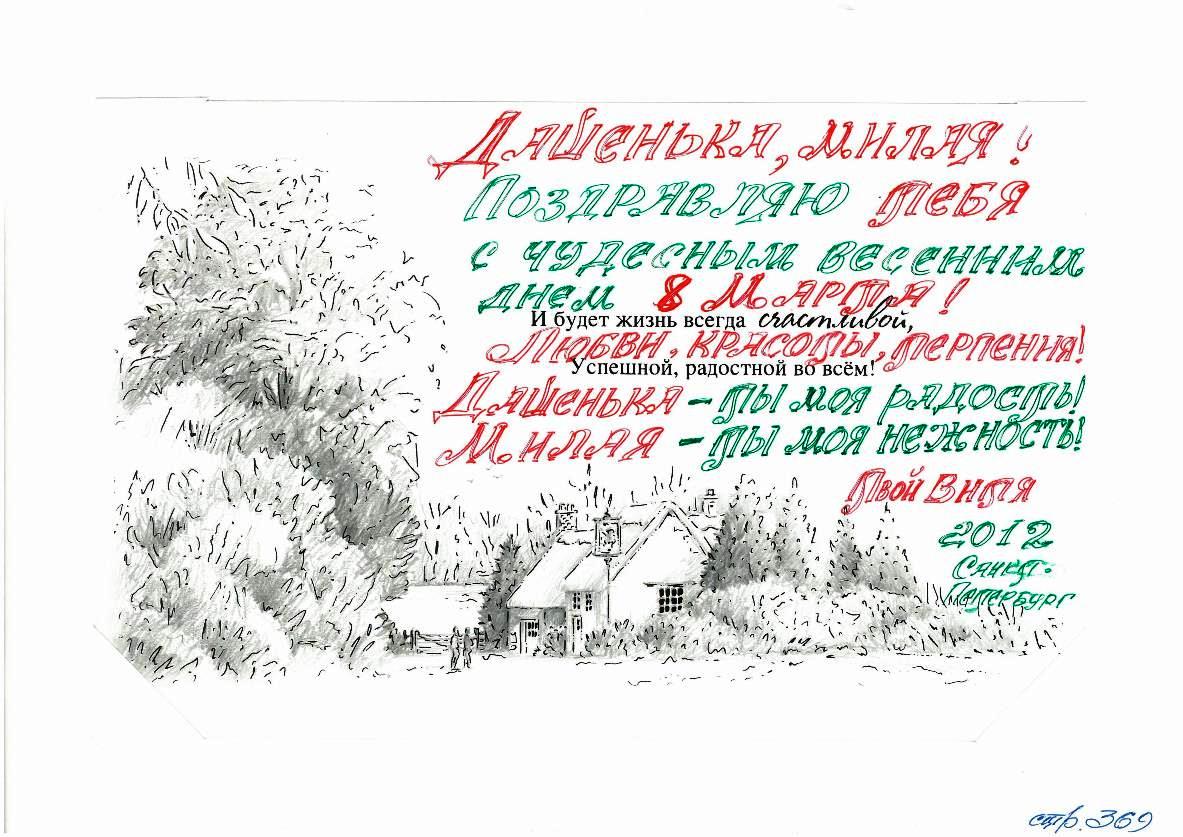 Дашенька, милая!
Поздравляю тебя
с чудесным весенним
днем 8 Марта!
И будет жизнь всегда счастливой,
Любви, красоты, терпения!
Успешной, радостной во всём!
Дашенька – ты моя радость!
Милая – ты моя нежность!
Твой Витя
2012
Санкт-
Петербург
стр. 369